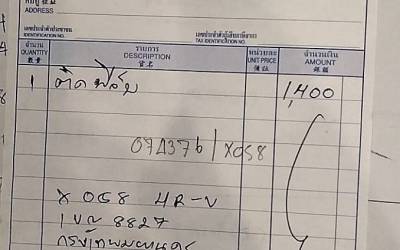 ที่อยู่
ADDRESS
เลขประจำตัวประชาชน
IDENTIFICATION NO.
เลขประจำตัวผู้เสียภาษีอากร
TAX IDENTIFICATION NO.
จำนวน รายการ หน่วยละ จำนวนเงิน
QUANTITY DESCRIPTION UNIT PRICE AMOUNT
數量 貨名 價錢 銀碼
1 ติดฟิล์ม 1,400
074376/X058
X 058 4R-V
1ขณ 8827
กรุงเทพมหานคร